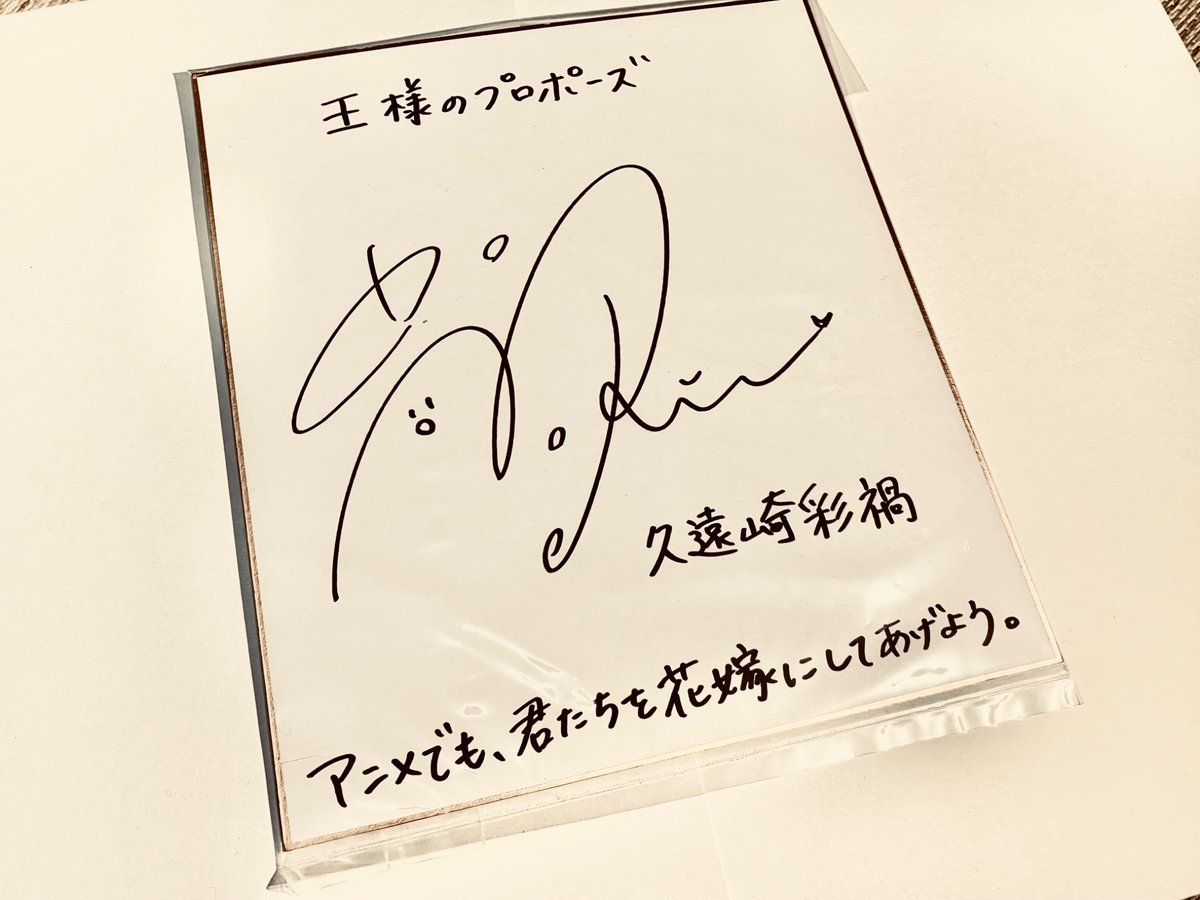 王様のプロポーズ
久遠崎彩禍
アニメでも、君たちを花嫁にしてあげよう。